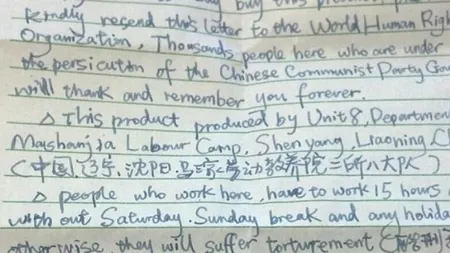 buy this product,
Kindly resend this letter to the World Human Righ
Organization, Thousands people here who are under
the persicution of the Chinese Communist Party Gov
will thank and remember you forever.
△ This product produced by Unit 8, Departmen
Mashanjia Labour Camp, Shen yang, Liaoning, Ch
(中国、辽宁、沈阳马三家劳动教养院二所八大队)
△ people who work here, have to work 15 hours
with out Saturday, Sunday break and any holida
otherwise, they will suffer torturement (